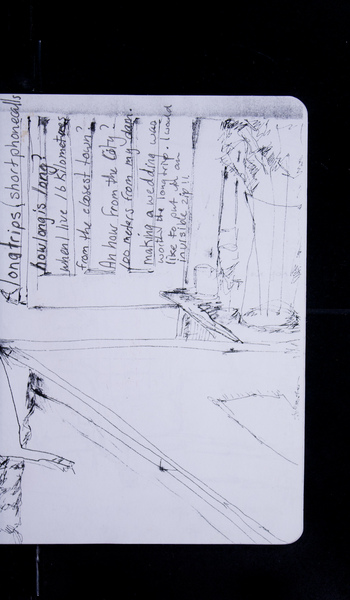 A long trips / short phonecalls
how long is long?
when I live 16 kilometres
from the closest town?
An hour from the city?
700 meters from my door.
making a wedding was
worth the long trip. I would
like to put it in an
invisible zip!!